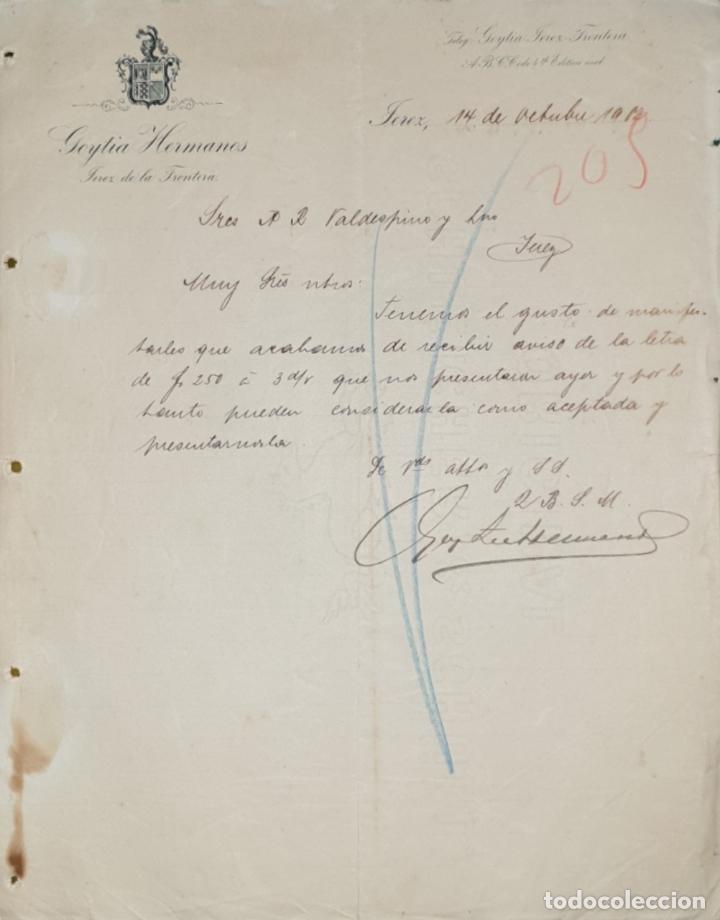 Teleg: Goytia-Jerez-Frontera
A.B.C. Code 4th Edition used
Goytia Hermanos
Jerez de la Frontera.
Jerez, 14 de Octubre 190
205
Sres A R Valdespino y Hno
Jerez
Muy Srës ntros:
Tenemos el gusto de manifes-
tarles que acabamos de recibir aviso de la letra
de 250 á 3 d/v que nos presentaron ayer y por lo
tanto pueden considerarla como aceptada y
presentarnosla.
De Vds attos y SS.
Q B. S. M.
Goytia Hermanos
todocoleccion
todocoleccion.net